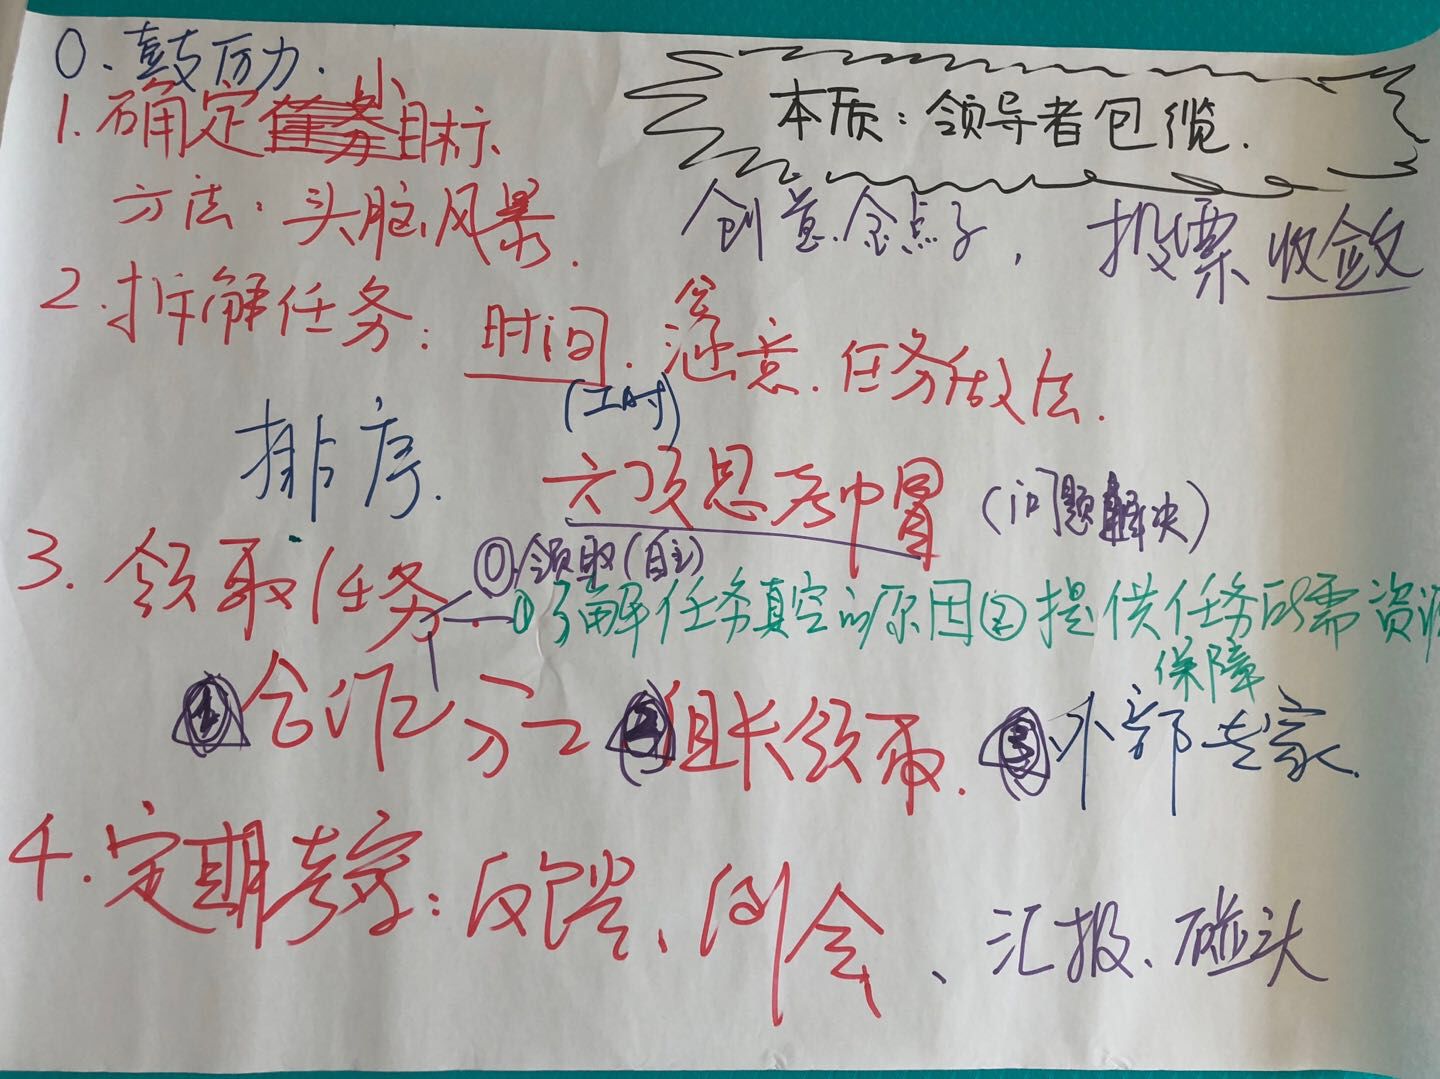 0、鼓厉力.
1.确定小目标.
本质：领导者包缆.
方法：头脑风暴.
创意.金点子，投票 收敛
2.拆解任务：时间.涵意.任务做法.
(工时)
排序.
六顶思考帽 (问题解决)
3.领取任务
⓪.领取(自主)
①了解任务真空的原因②提供任务所需资源
保障
①合作分工 ②组长领取. ③外部专家.
4.定期考察：反馈、例会、汇报、碰头